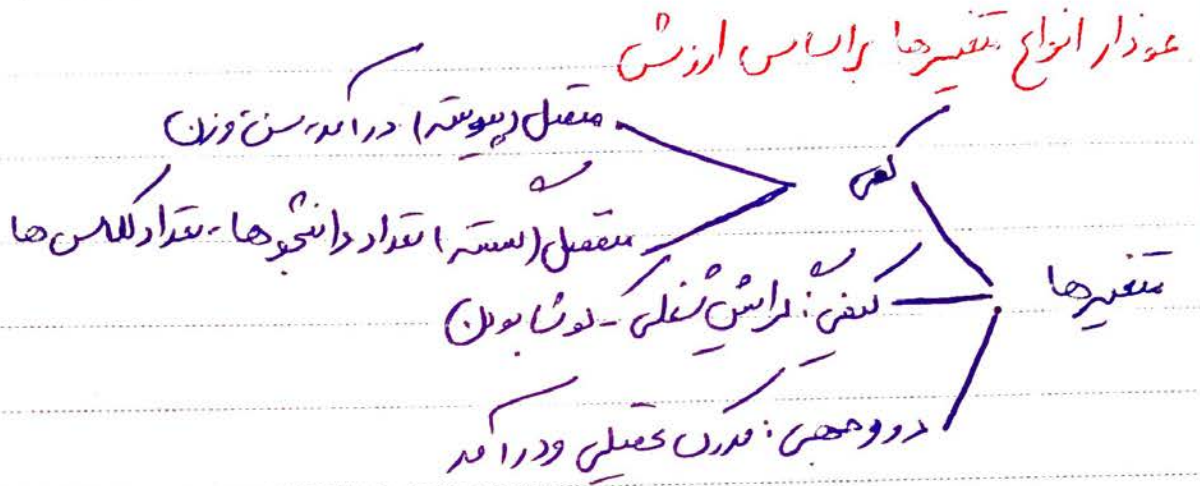 نمودار انواع متغیرها براساس ارزش
متصل (پیوسته) درآمد، سن، وزن
کمی
منفصل (گسسته) تعداد دانشجوها - تعداد کلاس ها
متغیرها
کیفی: گرایش شغلی - کوشا بودن
دو وجهی: مدرک تحصیلی و درآمد